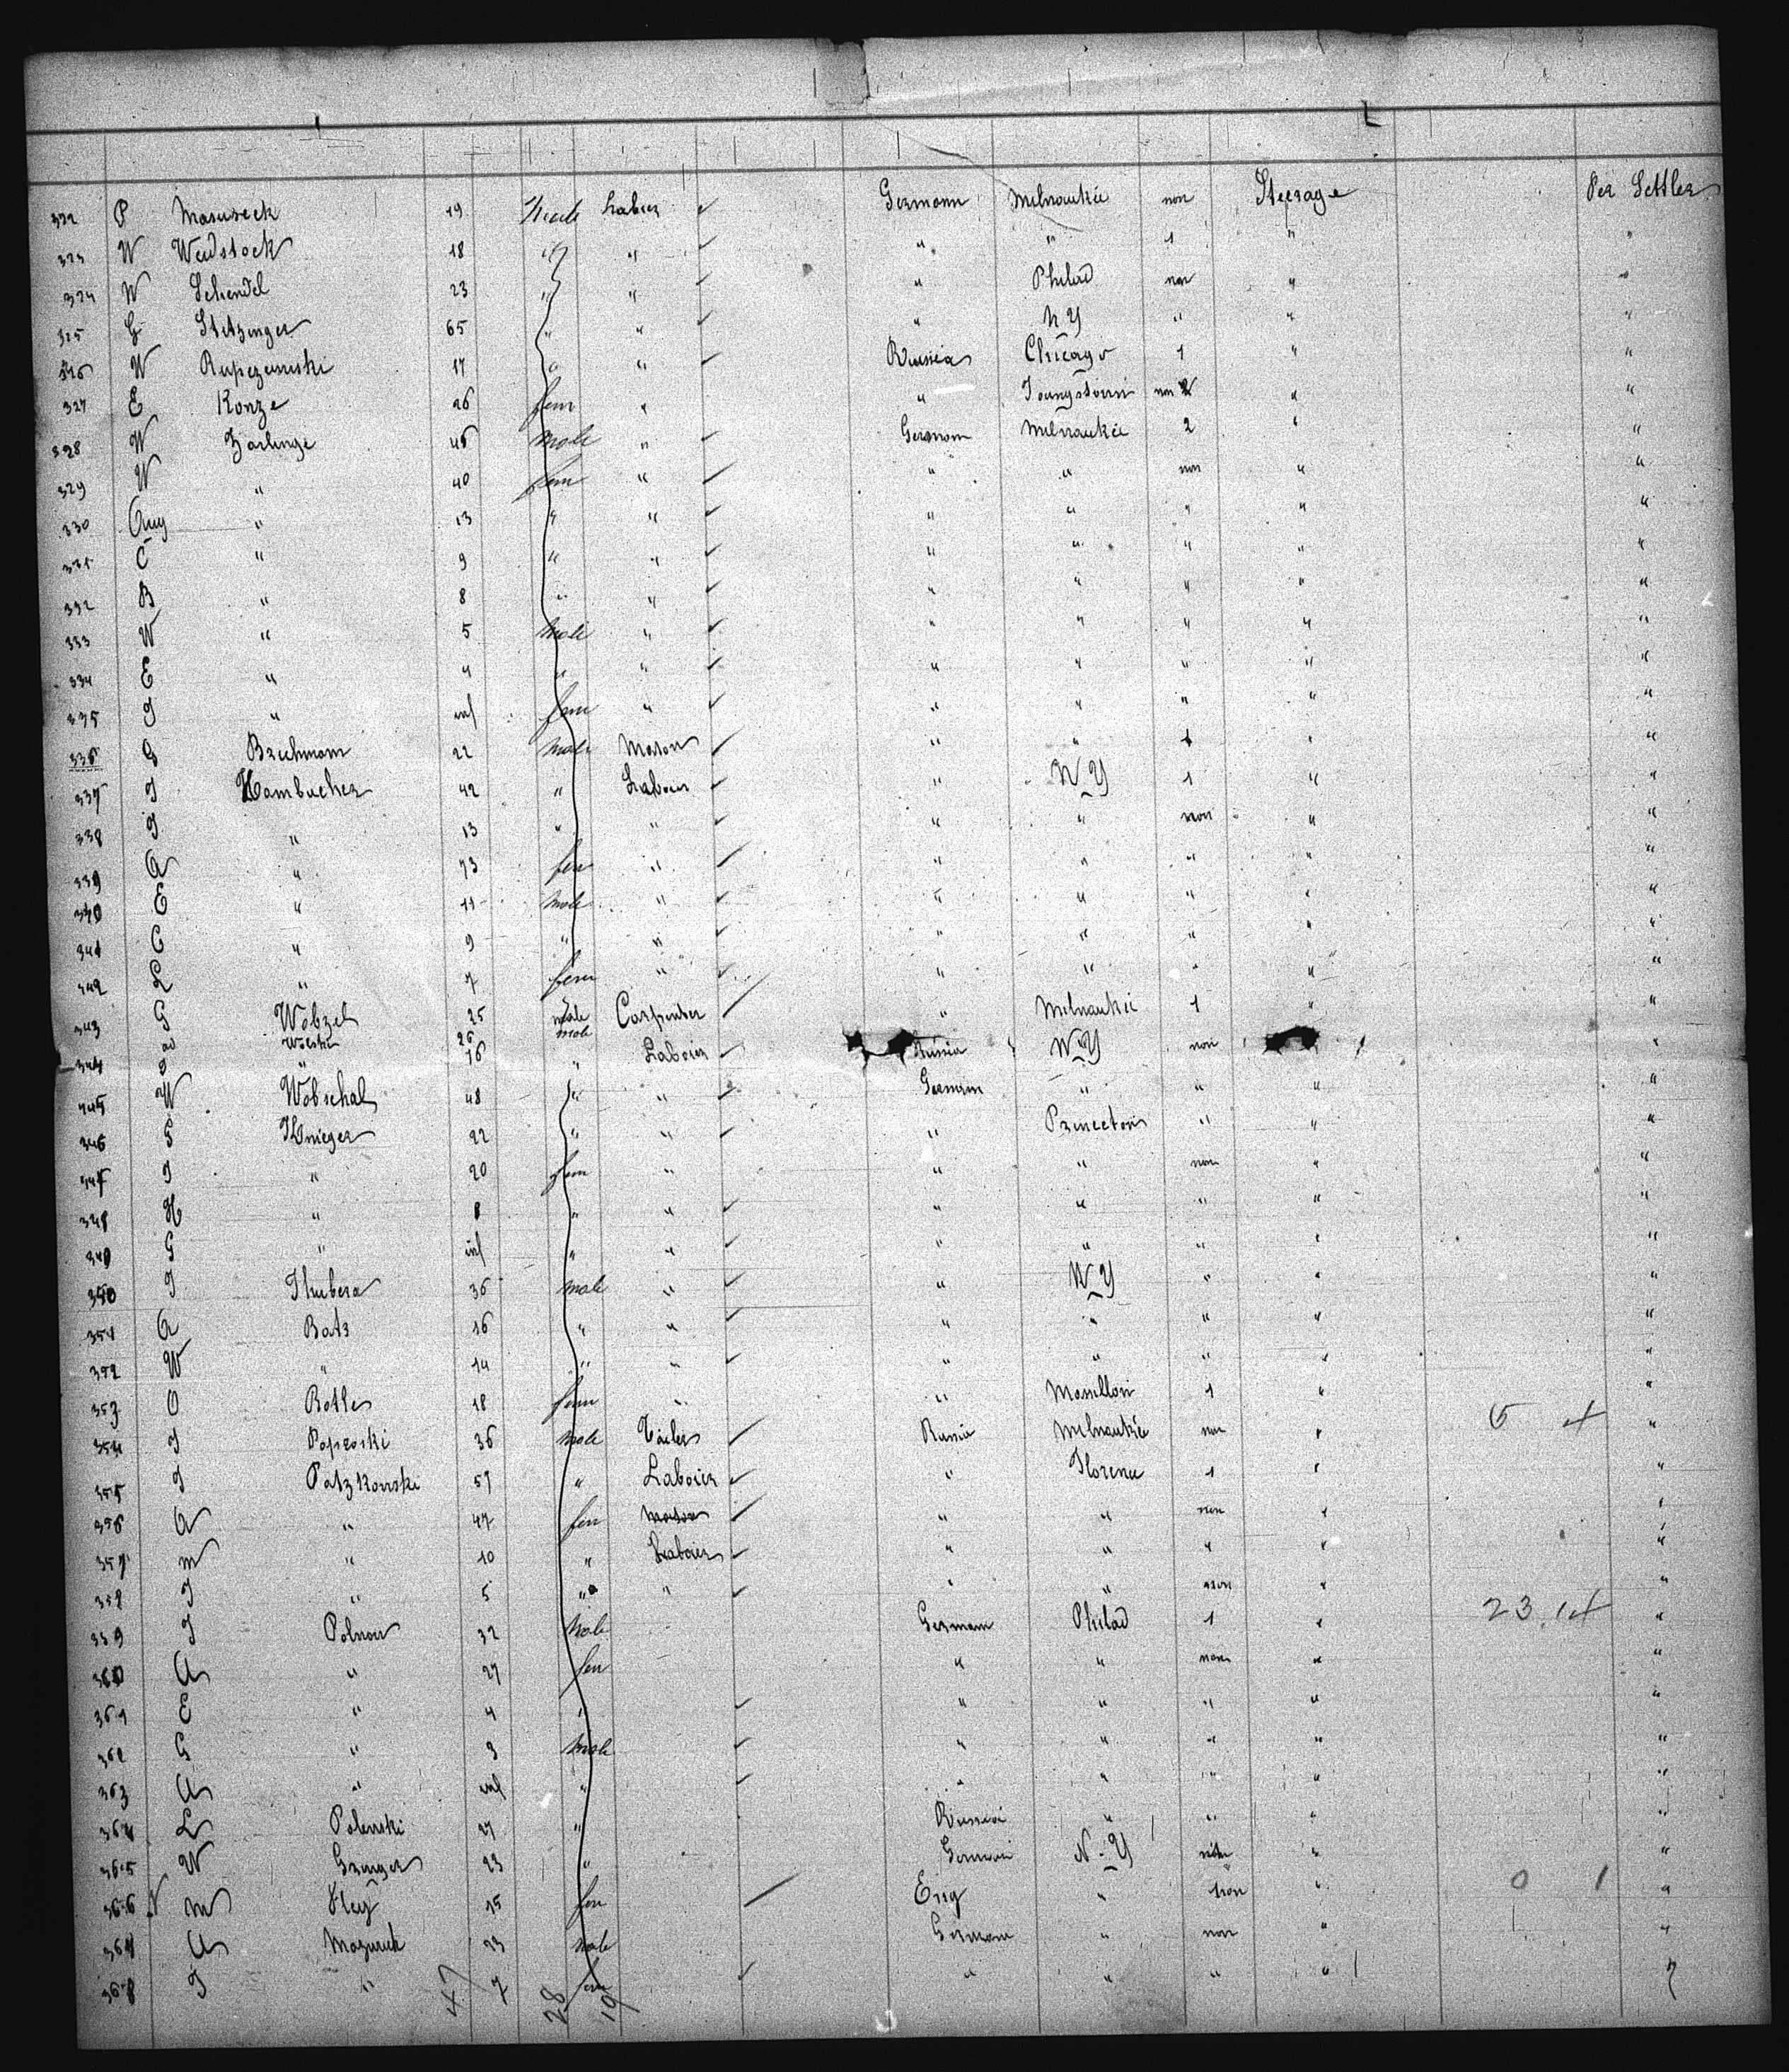 322 P Masureck 19 Male Labier ✓ Germann Milnaukie non Steerage Per Settler
323 W Weidstock 18 " " ✓ " " 1 " "
324 W Schendel 23 " " ✓ " Philad non " "
325 G Stitzinger 65 " " ✓ " N Y " " "
326 W Rupczeniski 17 " " ✓ Russia Chicago 1 " "
327 E Konze 26 fem " " Joungstown non " "
328 W Zarlinge 46 Male " ✓ Germann Milnaukie 2 " "
329 W " 40 fem " ✓ " " non " "
330 Aug " 13 " " ✓ " " " " "
331 C " 9 " " ✓ " " " " "
332 B " 8 " " ✓ " " " " "
333 W " 5 Male " ✓ " " " " "
334 E " 4 " " ✓ " " " " "
335 J " inf fem " ✓ " " " " "
336 G Brechmann 22 Male Mason ✓ " " 1 " "
337 J Hambucher 42 " Labier ✓ " N Y 1 " "
338 J " 13 " " ✓ " " non " "
339 A " 73 fem " ✓ " " " " "
340 E " 11 Male " ✓ " " " " "
341 C " 9 " " ✓ " " " " "
342 L " 7 fem " ✓ " " " " "
343 G Wobzel 25 Male Carpenter ✓ " Milnaukie 1 " "
26 male
344 " 16 " Labier ✓ Russia N Y non "
345 W Wobschal 48 " " ✓ Germann " " " "
346 Krieger 22 " " ✓ " Princeton " " "
347 J " 20 fem " " " non " "
348 H " 8 " " ✓ " " " " "
349 G " inf " " ✓ " " " " "
350 J Thubera 36 male " ✓ " N Y " " "
351 A Bats 16 " " ✓ " " " " "
352 W " 14 " " ✓ " " " " "
353 O Bothe 18 fem " " Massillon 1 " "
354 J Popeoski 36 Male Tailer ✓ Russia Milnaukie non " 6 4 "
355 J Patzkonski 57 " Labier ✓ " Florence 1 " "
356 A " 47 fem Mason ✓ " " non " "
357 M " 10 " Labier ✓ " " " " "
358 J " 5 " " ✓ " " non " "
359 J Polnow 32 Male Germann Philad 1 " 23 14 "
360 A " 27 fem " " non " "
361 E " 4 " ✓ " " " " "
362 G " 3 Male ✓ " " " " "
363 A " inf " ✓ " " " " "
364 L Polenski 27 " Russia " " " "
365 W Gringer 23 " Germann N. Y " "
366 M Hey 15 fem Eng " non " 0 1 "
367 A Mazuruk 23 Male Germann " non " "
368 J " 7 fem ✓ " " " "
47 28 19